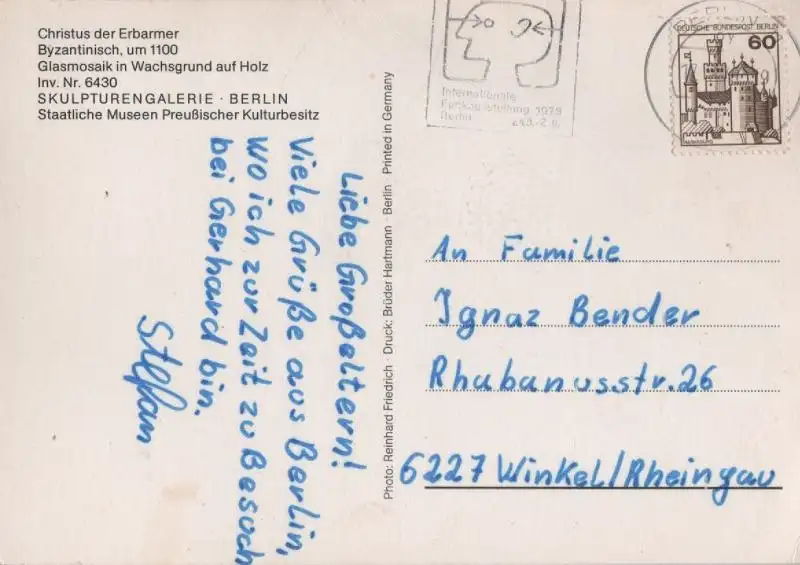 Christus der Erbarmer
Byzantinisch, um 1100
Glasmosaik in Wachsgrund auf Holz
Inv. Nr. 6430
SKULPTURENGALERIE · BERLIN
Staatliche Museen Preußischer Kulturbesitz
Liebe Großeltern!
Viele Grüße aus Berlin,
wo ich zur Zeit zu Besuch
bei Gerhard bin.
Stefan
Photo: Reinhard Friedrich · Druck: Brüder Hartmann · Berlin · Printed in Germany
Internationale
Funkausstellung 1979
Berlin
DEUTSCHE BUNDESPOST BERLIN
60
MARKSBURG
An Familie
Ignaz Bender
Rhabanusstr. 26
6227 Winkel/Rheingau